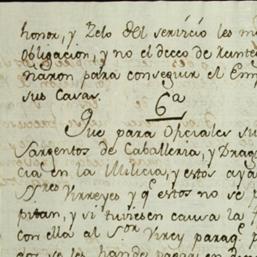 honor, y Zelo del servicio les m
obligacion, y no el deceo de
naron para conseguir el Em
sus Casas.
6ª
Que para Oficiales su
Sargentos de Caballeria, y Drag
cia en la Milicia, y estos aya
Sres Virreyes y qe estos no se p
pitan, y si tuviesen causa la f
con ella al Sor Virrey paraqe p